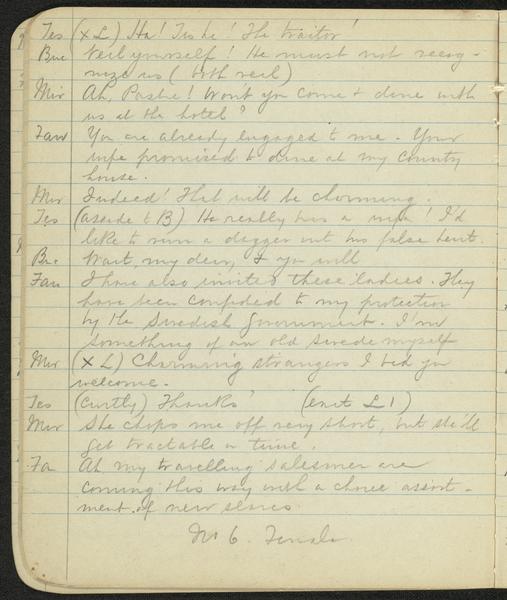 Tes (x L) Ha! Tis he! The traitor!
Buc Veil yourself! He must not recog-
nize us (both veil)
Mir Ah, Pasha! Won't you come & dine with
us at the hotel?
Fan You are already engaged to me. Your
wife promised to dine at my country
house.
Mir Indeed! That will be charming.
Tes (asside to B) He really has a wife! I'd
like to run a dagger into his false heart.
Buc Wait, my dear, & you will
Fan I have also invited these ladies. They
have been confided to my protection
by the Swedish Government. I'm
something of an old Swede myself
Mir (x L) Charming strangers I bid you
welcome.
Tes (curtly) Thanks! (exit L 1)
Mir She chops me off very short, but she'll
get tractable in time.
Fa Ah my travelling salesmen are
coming this way with a choice assort-
ment of new slaves
No 6. Finale